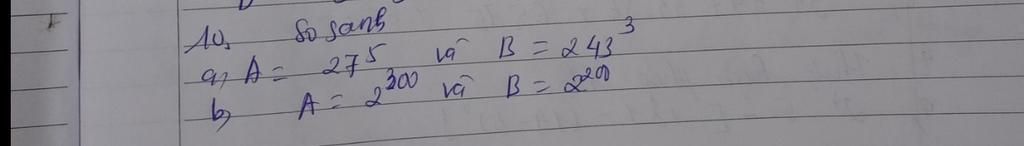 10, So sanh
a, A = 27⁵ và B = 243³
b, A = 2³⁰⁰ và B = 2²⁰⁰